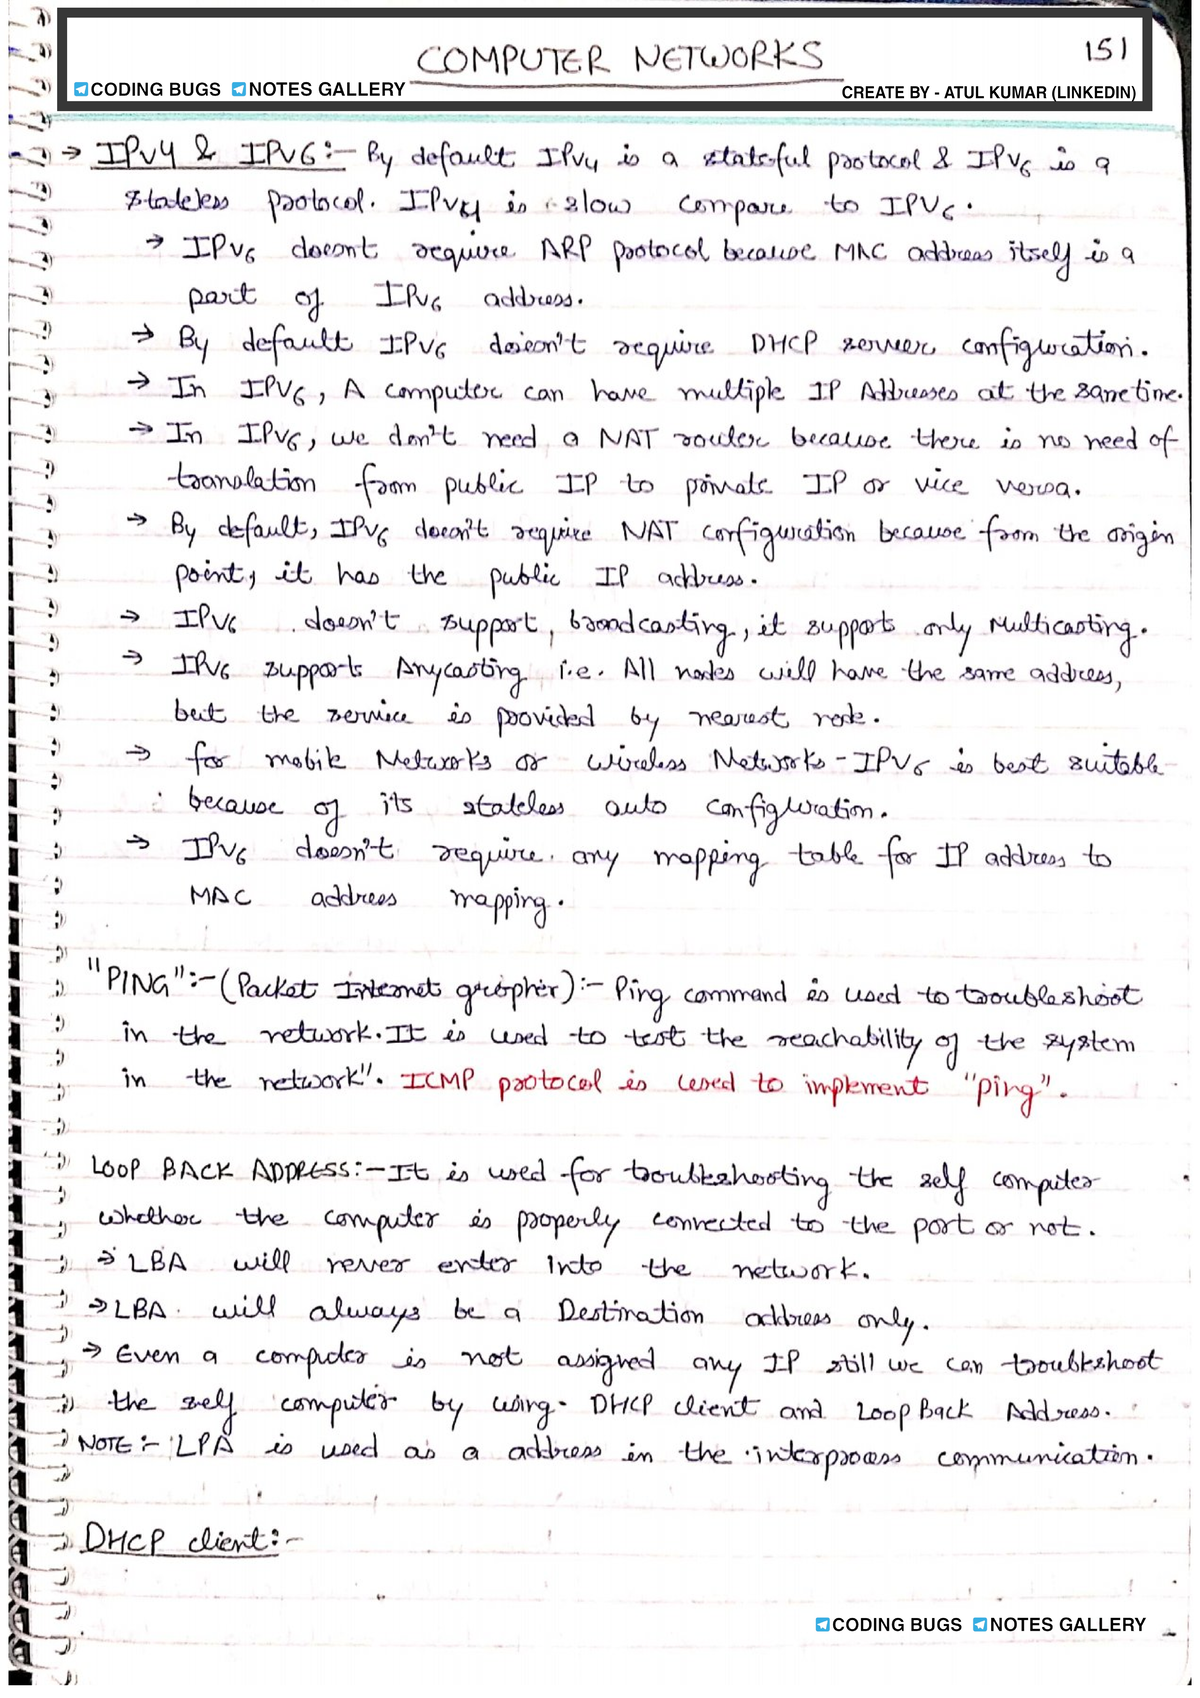 COMPUTER NETWORKS
151
CODING BUGS NOTES GALLERY
CREATE BY - ATUL KUMAR (LINKEDIN)
→ IPv4 & IPv6:- By default IPv4 is a stateful protocol & IPv6 is a
stateless protocol. IPv4 is slow compare to IPv6.
→ IPv6 doesnt require ARP protocol because MAC address itself is a
part of IPv6 address.
→ By default IPv6 doesn't require DHCP server configuration.
→ In IPv6, A computer can have multiple IP Addresses at the same time.
→ In IPv6, we don't need a NAT router because there is no need of
translation from public IP to private IP or vice versa.
→ By default, IPv6 doesn't require NAT configuration because from the origin
point, it has the public IP address.
→ IPv6 doesn't support, broadcasting, it supports only Multicasting.
→ IPv6 supports Anycasting i.e. All nodes will have the same address,
but the service is provided by nearest node.
→ for mobile Networks or wireless Networks - IPv6 is best suitable
because of its stateless auto configuration.
→ IPv6 doesn't require any mapping table for IP address to
MAC address mapping.
"PING":- (Packet Internet gropher):- Ping command is used to troubleshoot
in the network. It is used to test the reachability of the system
in the network". ICMP protocol is used to implement "ping".
LOOP BACK ADDRESS:- It is used for troubleshooting the self computer
whether the computer is properly connected to the port or not.
→ LBA will never enter into the network.
→ LBA will always be a Destination address only.
→ Even a computer is not assigned any IP still we can troubleshoot
the self computer by using DHCP client and Loop Back Address.
NOTE:- LPA is used as a address in the interprocess communication.
DHCP client:-
CODING BUGS NOTES GALLERY